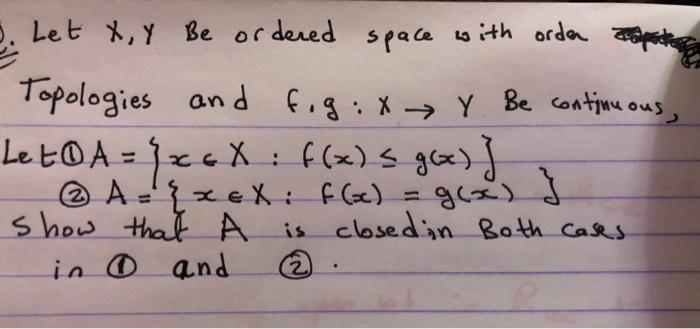 . Let X, Y Be ordered space with order
Topologies and f,g : X → Y Be continuous,
Let ① A = { x ∈ X : f(x) ≤ g(x) }
② A = { x ∈ X : f(x) = g(x) }
show that A is closed in Both cases
in ① and ② .